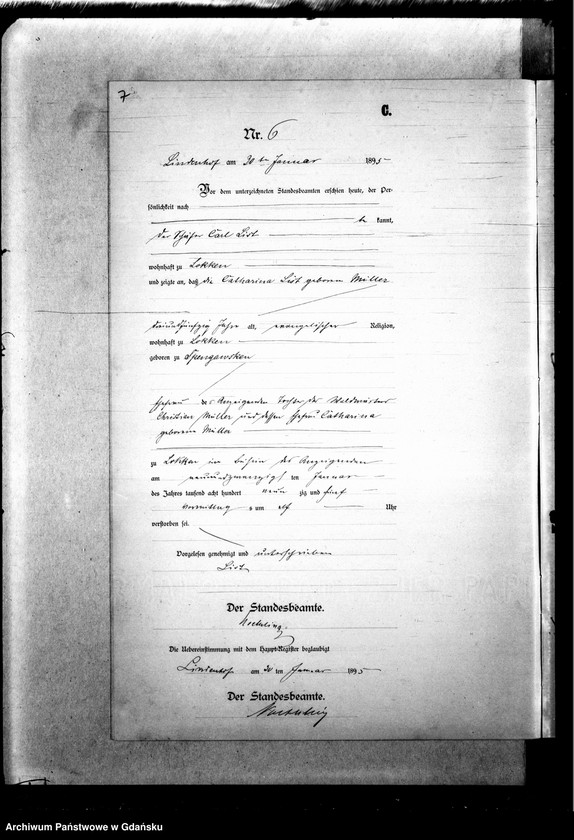 7
C.
Nr. 6
Lindenhof am 30ten Januar 1895
Vor dem unterzeichneten Standesbeamten erschien heute, der Per-
sönlichkeit nach
be kannt,
der Schäfer Carl List
wohnhaft zu Lokken
und zeigte an, daß die Catharina List geborene Müller
dreiundfünfzig Jahre alt, evangelischer Religion,
wohnhaft zu Lokken
geboren zu Spengawsken
Ehefrau des Anzeigenden Tochter des Waldwärter
Christian Müller und dessen Ehefrau Catharina
geborene Müller
zu Lokken im Beisein des Anzeigenden
am neunundzwanzigsten Januar
des Jahres tausend acht hundert neun zig und fünf
Vormittags um elf Uhr
verstorben sei.
Vorgelesen genehmigt und unterschrieben
List
Der Standesbeamte.
Die Uebereinstimmung mit dem Haupt-Register beglaubigt
Lindenhof am 30 ten Januar 1895
Der Standesbeamte.
Archiwum Państwowe w Gdańsku